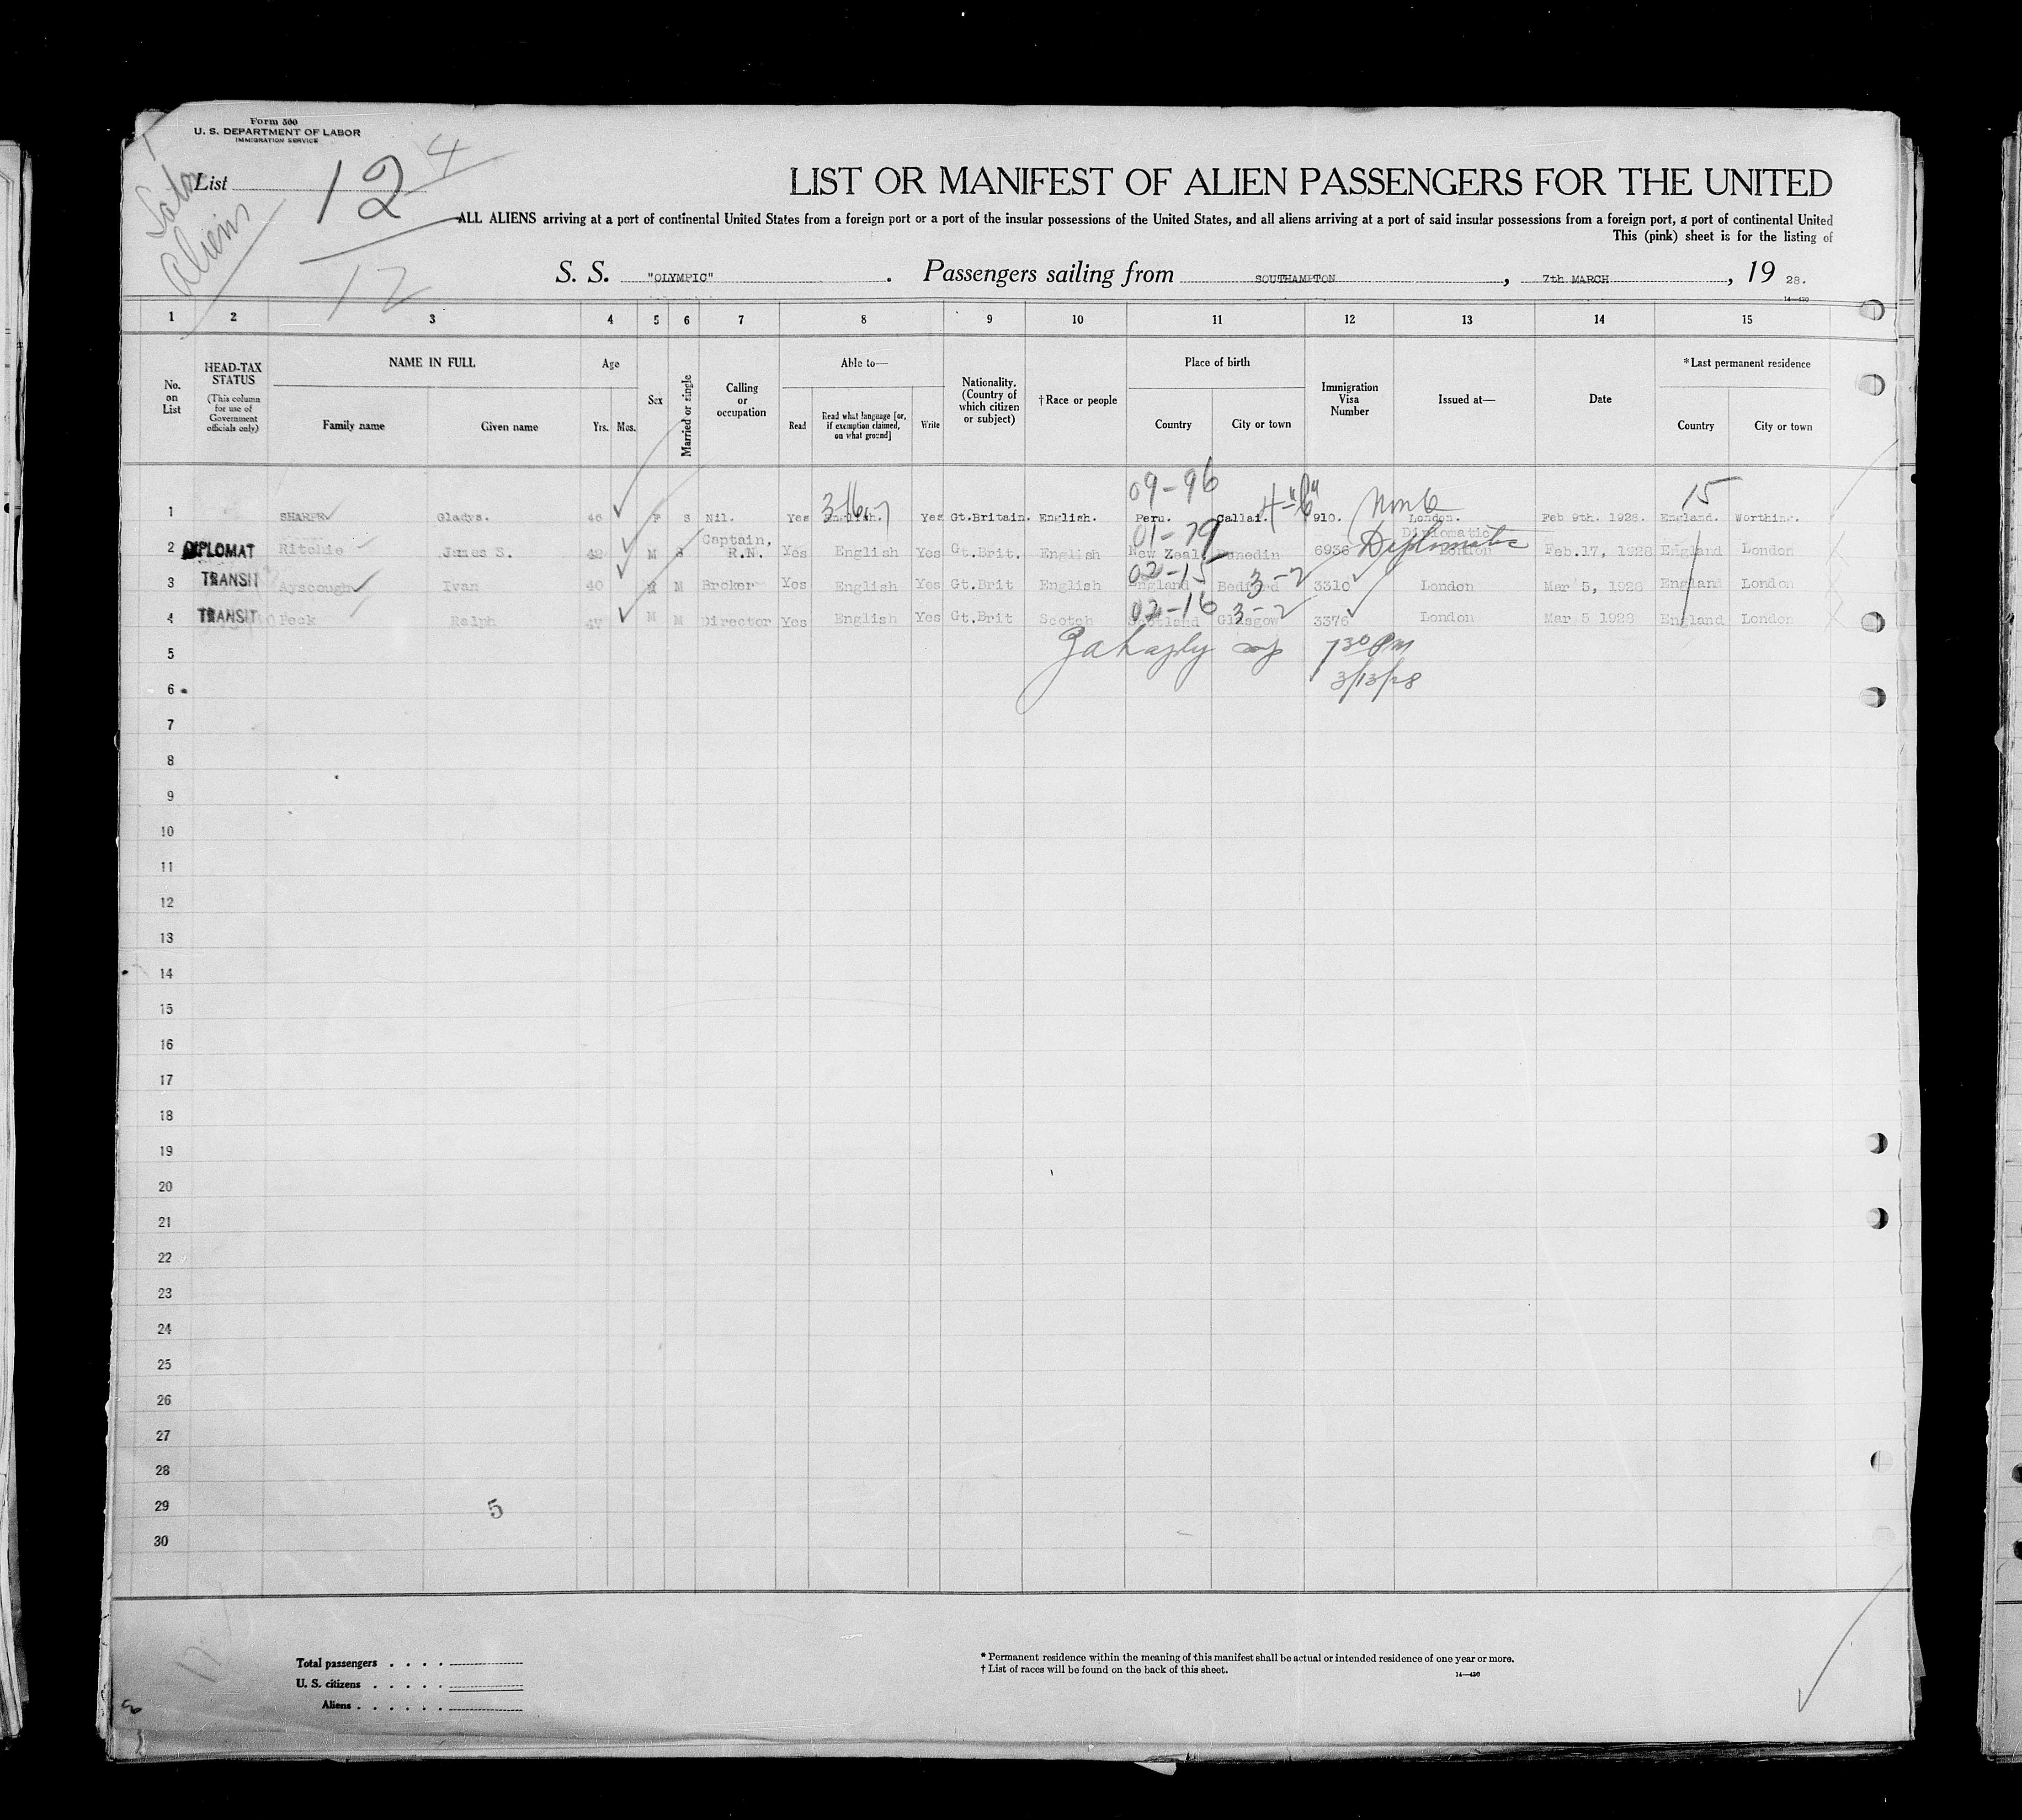 Form 500
U. S. DEPARTMENT OF LABOR
IMMIGRATION SERVICE
List 12 4
Aliens
12
LIST OR MANIFEST OF ALIEN PASSENGERS FOR THE UNITED
ALL ALIENS arriving at a port of continental United States from a foreign port or a port of the insular possessions of the United States, and all aliens arriving at a port of said insular possessions from a foreign port, a port of continental United
This (pink) sheet is for the listing of
S. S. "OLYMPIC" . Passengers sailing from SOUTHAMPTON , 7th MARCH , 19 28.
14—430
1 2 3 4 5 6 7 8 9 10 11 12 13 14 15
No. on List
HEAD-TAX STATUS
(This column for use of Government officials only)
NAME IN FULL
Family name Given name
Age
Yrs. Mos.
Sex
Married or single
Calling or occupation
Able to—
Read Read what language [or, if exemption claimed, on what ground] Write
Nationality. (Country of which citizen or subject)
†Race or people
Place of birth
Country City or town
Immigration Visa Number
Issued at—
Date
*Last permanent residence
Country City or town
09-96 15
1 SHARPE Gladys. 46 F S Nil. Yes English. Yes Gt.Britain. English. Peru. Callai. 4-"6" 910. London. Feb 9th. 1928. England. Worthing.
01-79
2 DIPLOMAT Ritchie James S. M S Captain, R.N. Yes English Yes Gt.Brit. English New Zeal Dunedin 6936 Diplomatic London Diplomatic Feb.17, 1928 England London
02-15 3-2
3 TRANSIT Ayscough Ivan 40 M M Broker Yes English Yes Gt.Brit English England Bedford 3310 London Mar 5, 1928 England London
02-16 3-2
4 TRANSIT Peck Ralph 47 M M Director Yes English Yes Gt.Brit Scotch Scotland Glasgow 3376 London Mar 5 1928 England London
5 730 PM
6 3/13/28
7
8
9
10
11
12
13
14
15
16
17
18
19
20
21
22
23
24
25
26
27
28
29 5
30
Total passengers . . . .
U. S. citizens . . . . .
Aliens . . . . . .
* Permanent residence within the meaning of this manifest shall be actual or intended residence of one year or more.
† List of races will be found on the back of this sheet.
14—430